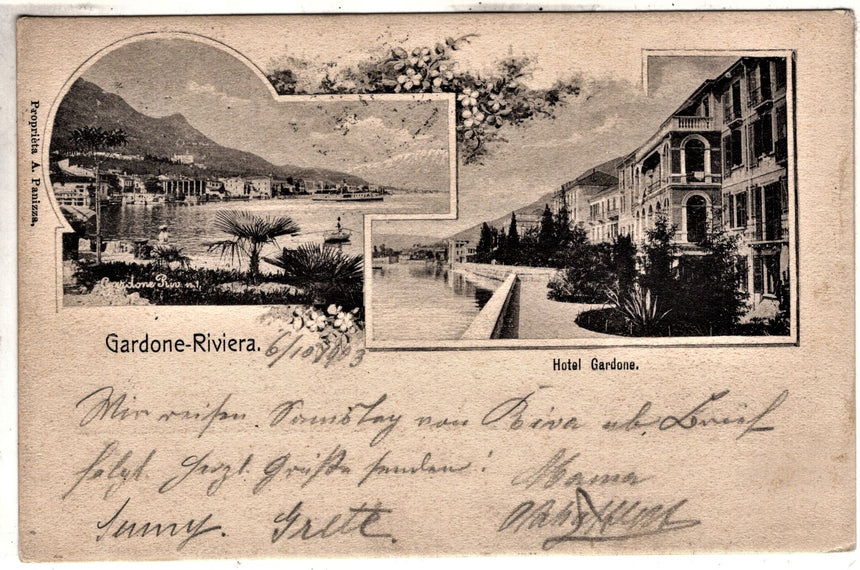 Proprièta A. Panizza,
Gardone Riv. n. 1.
Gardone-Riviera. 6/10 1903
Hotel Gardone.
Wir reisen Samstag von Riva ab. Brief
folgt. Herzl. Grüße senden! Mama
Sunny. Grete.